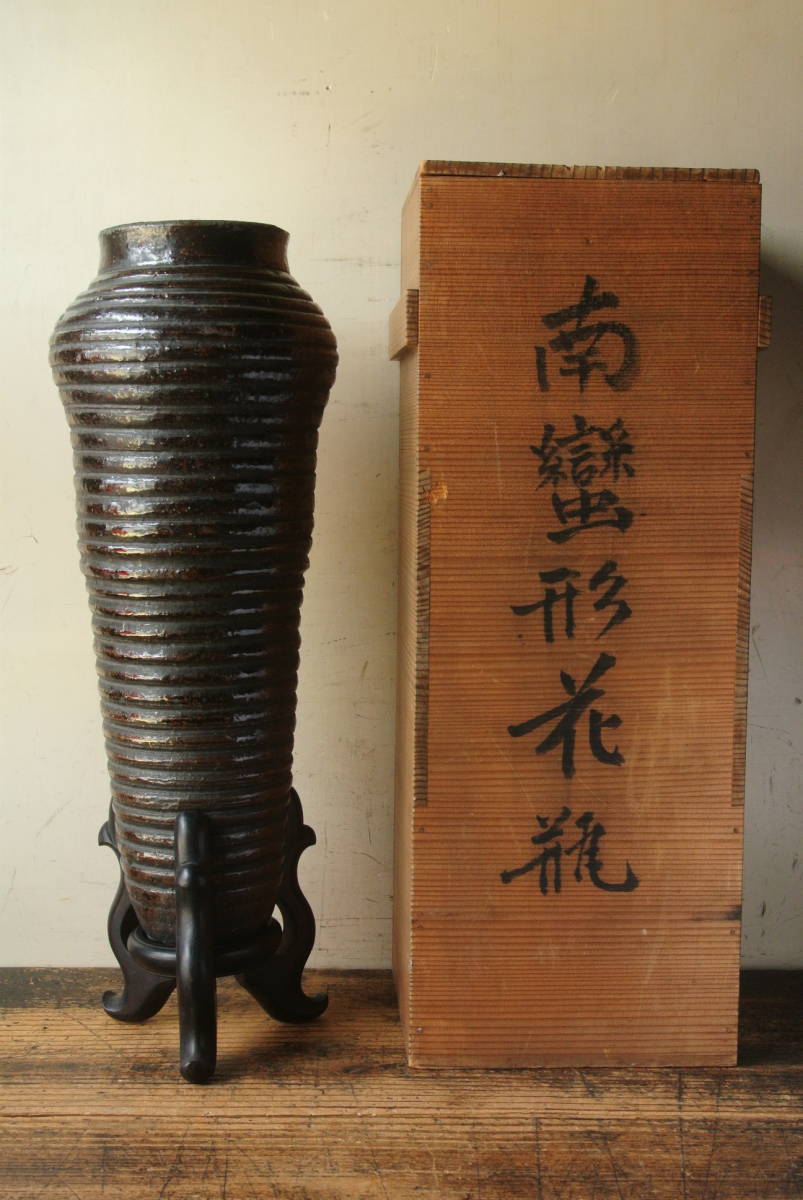 南蠻形花瓶